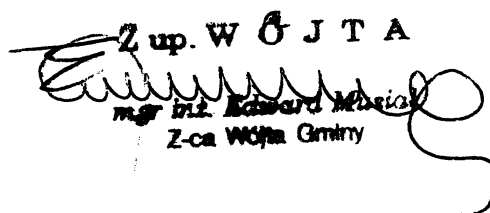 Z up. W Ó J T A
mgr inż. Edward Musiał
Z-ca Wójta Gminy